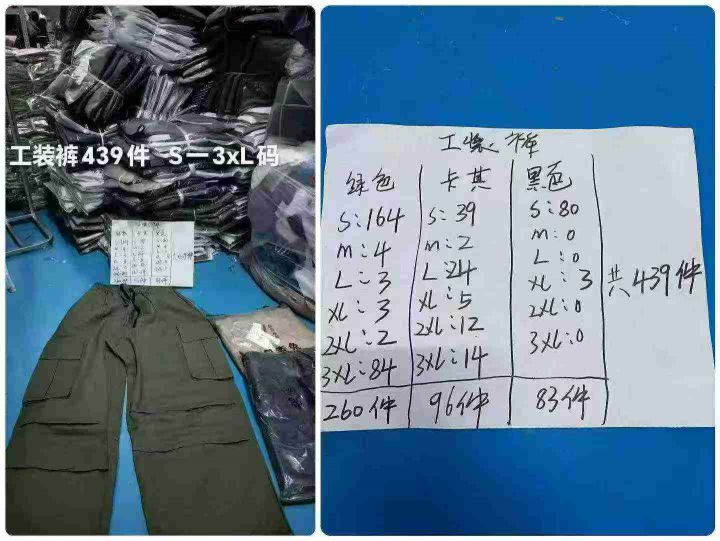 工装裤439件 S一3xL码
工装裤
绿色 卡其 黑色
S:164 S:39 S:80
M:4 M:2 M:0
L:3 L:24 L:0
XL:3 XL:5 XL:3
2XL:2 2XL:12 2XL:0
3XL:84 3XL:14 3XL:0
260件 96件 83件
共439件